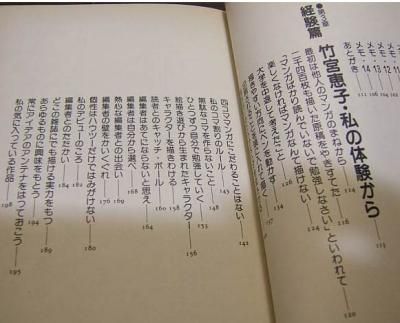 メモ・11
メモ・12
メモ・13
メモ・14
あとがき 111
●第3章
経験篇
竹宮恵子・私の体験から
最初は他人のマンガのまねから 120
二千四百枚も描いた原稿をやきすてた 124
「マンガばかり読んでいないで勉強しなさい」といわれて
楽しくなければマンガなんて描けない
大学を中退して考えたこと
描きやすいガラスペンを動かす 137
四コママンガにこだわることはない 142
私のコマ割りのルール 145
無駄なコマを作らないこと 148
ひとつずつ自分で勉強していく 151
絵描き遊びから生まれたキャラクター 153
キャラクターを描きわける 158
読者とのキャッチ・ボール 160
編集者はあてにならないと思え 164
編集者は自分から選べ 168
熱心な編集者との出会い 169
編集者の壁をかいくぐれ 176
個性はハウツーだけではみがけない 180
私のデビューのころ 182
編集者とのたたかい 184
どこの雑誌にでも描ける実力をもつ
あらゆるものに興味をもとう
常にアイデアのアンテナをはっておこう 195
私の気に入っている作品 198